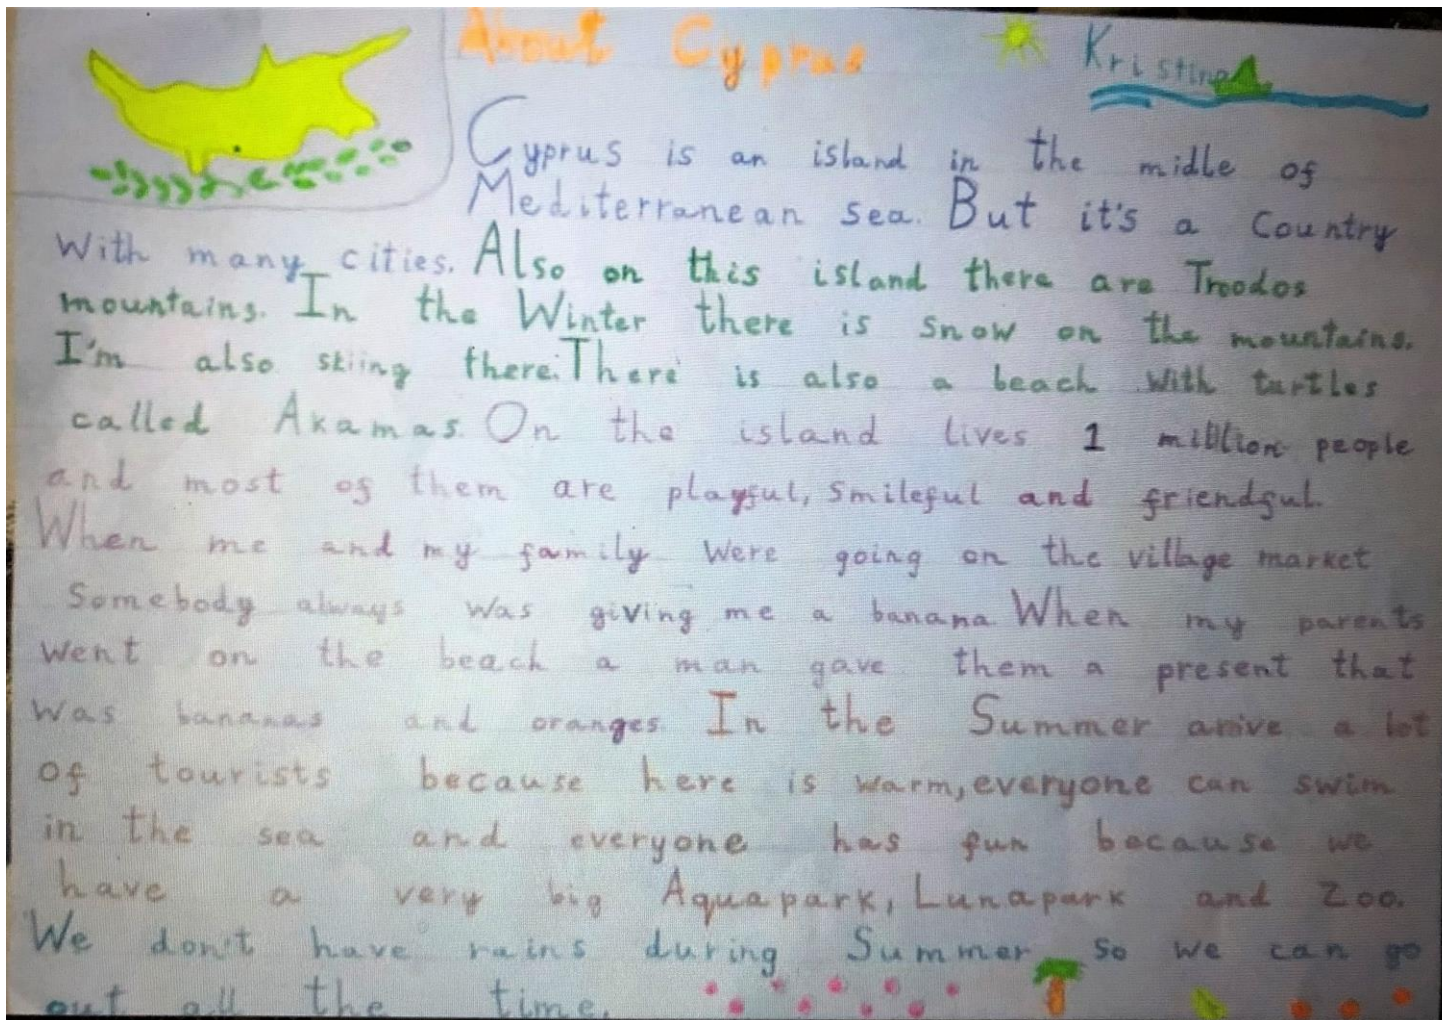 About Cyprus
Kristina
Cyprus is an island in the midle of
Mediterranean sea. But it's a Country
With many cities. Also on this island there are Troodos
mountains. In the Winter there is snow on the mountains.
I'm also skiing there. There is also a beach with turtles
called Akamas. On the island lives 1 million people
and most of them are playful, smileful and friendful.
When me and my family were going on the village market
Somebody always was giving me a banana. When my parents
went on the beach a man gave them a present that
was bananas and oranges. In the Summer arrive a lot
of tourists because here is warm, everyone can swim
in the sea and everyone has fun because we
have a very big Aquapark, Lunapark and Zoo.
We don't have rains during Summer so we can go
out all the time.